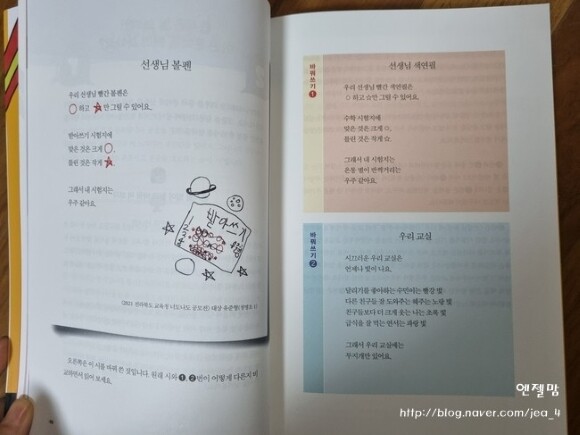 선생님 볼펜
우리 선생님 빨간 볼펜은
○ 하고 ☆ 안 그릴 수 있어요.
받아쓰기 시험지에
맞은 것은 크게 ○,
틀린 것은 작게 ☆.
그래서 내 시험지는
우주 같아요.
받아쓰기
오른쪽은 이 시를 바꿔 쓴 것입니다. 원래 시와 ❶, ❷번이 어떻게 다른지 비
교하면서 읽어 보세요.
바꿔쓰기 ❶
선생님 색연필
우리 선생님 빨간 색연필은
○ 하고 ☆ 안 그릴 수 있어요.
수학 시험지에
맞은 것은 크게 ○,
틀린 것은 작게 ☆.
그래서 내 시험지는
온통 별이 반짝거리는
우주 같아요.
바꿔쓰기 ❷
우리 교실
시끄러운 우리 교실은
언제나 빛이 나요.
달리기를 좋아하는 수민이는 빨강 빛
다른 친구들 잘 도와주는 해주는 노랑 빛
친구들보다 더 크게 웃는 나는 초록 빛
급식을 잘 먹는 연서는 파랑 빛
그래서 우리 교실에는
무지개만 있어요.
엔젤맘
http://blog.naver.com/jea_4